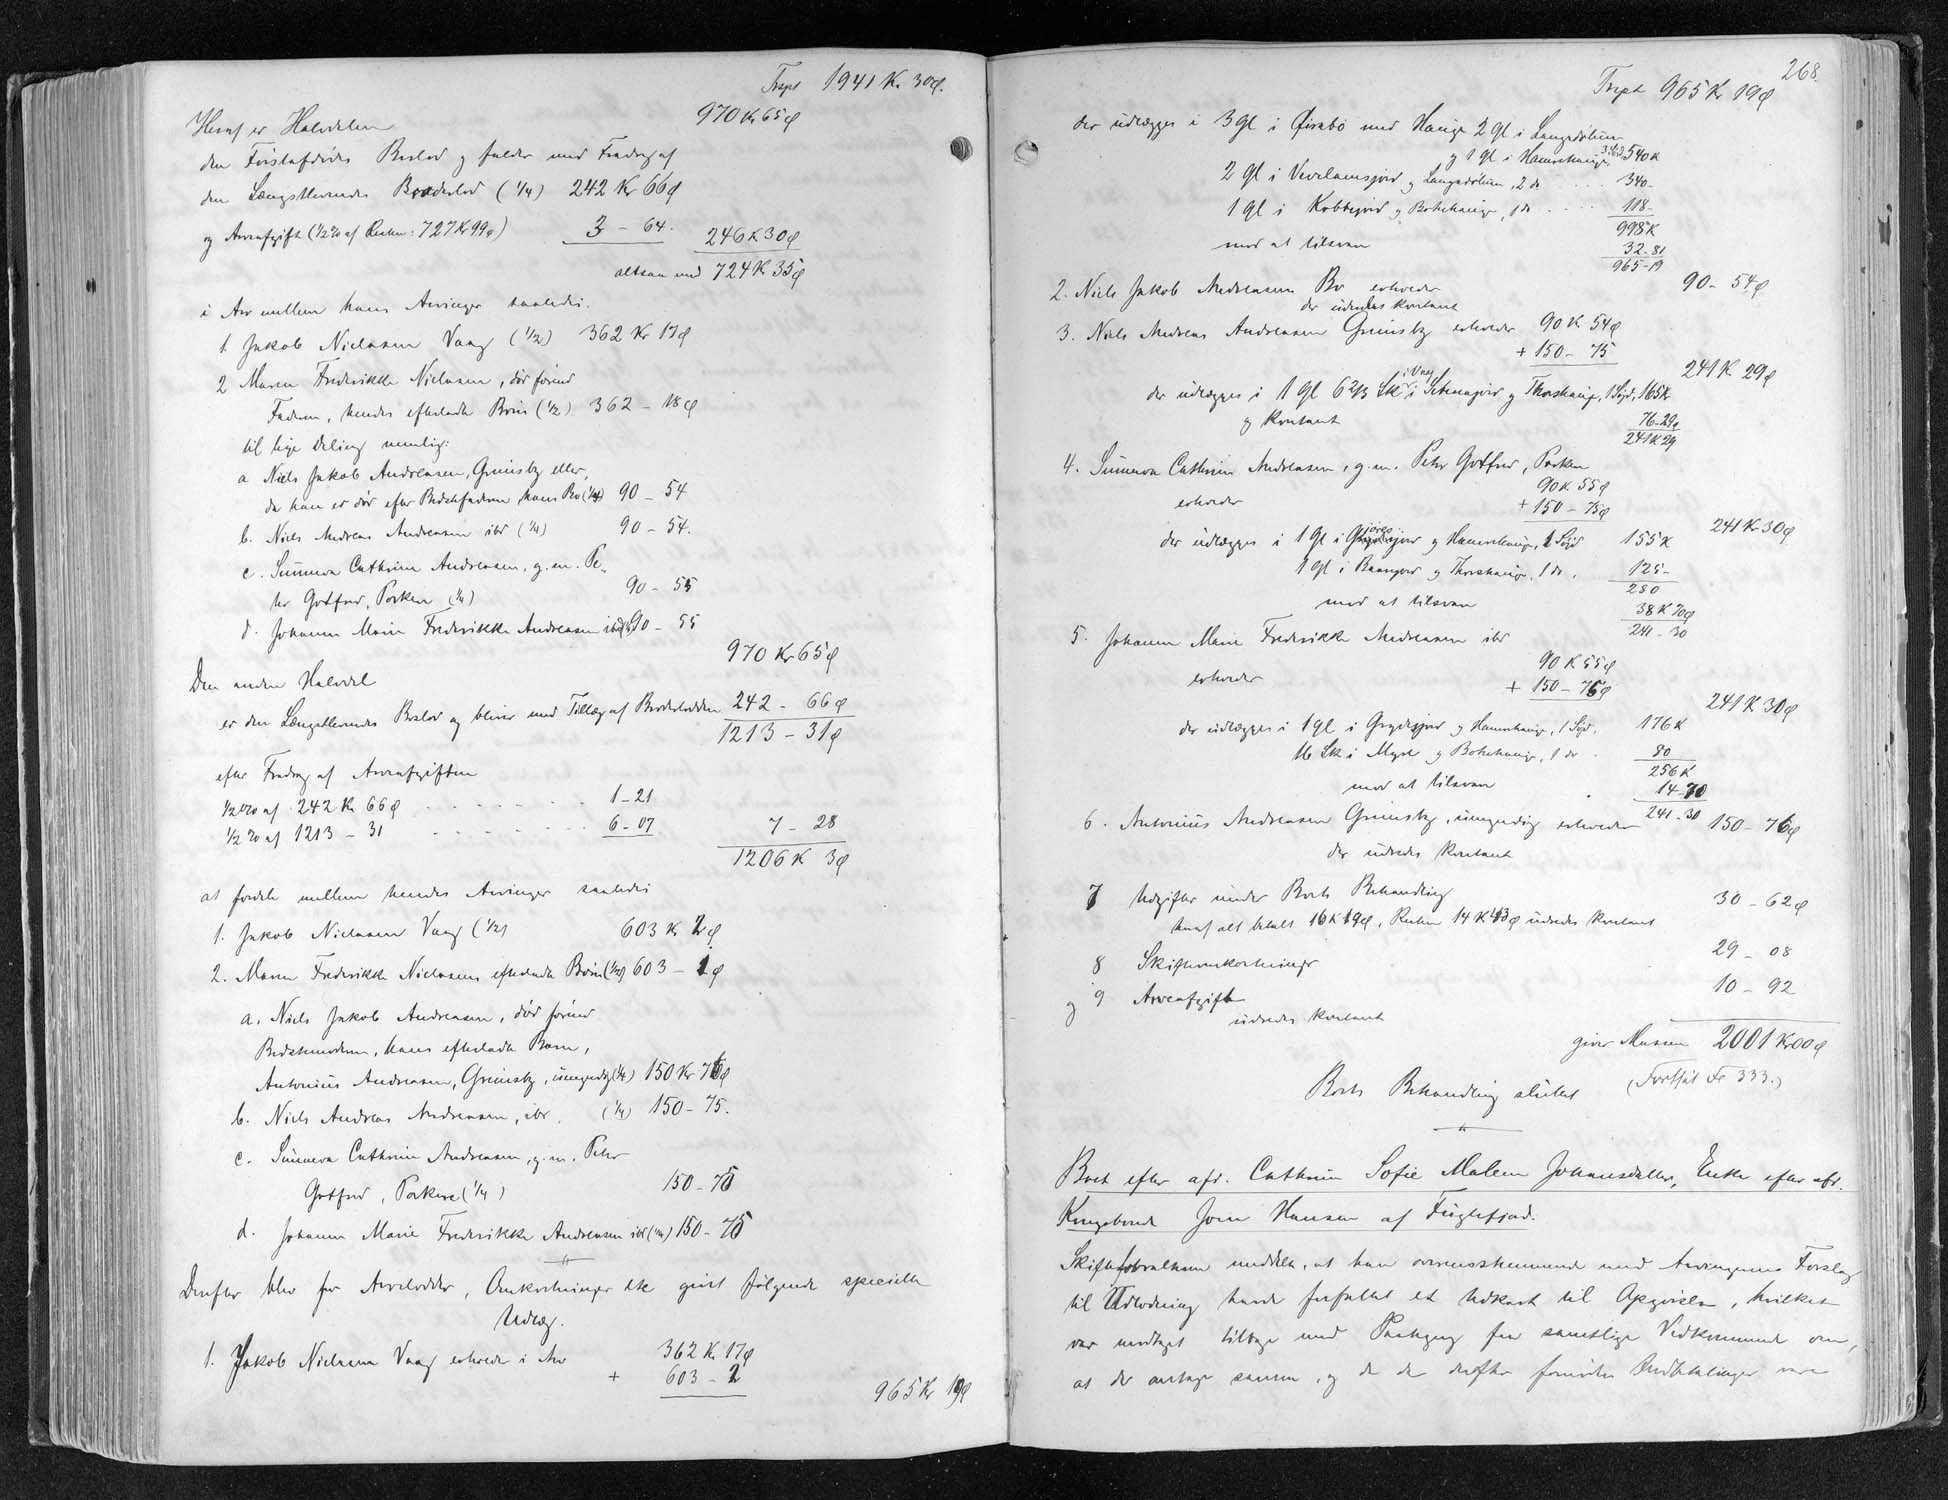 Trspt 1941 Kr. 30 Ø.
Heraf er Halvdelen 970 Kr 65 Ø
den Førstafdødes Boslod og falder med Fradrag af
den Længstlevendes Broderlod (1/4) 242 Kr 66 Ø
og Arveafgift (1/2 % af Resten: 727 Kr 99 Ø) 3 – 64. 246 K 30 Ø
altsaa med 724 K 35 Ø
i Arv mellem hans Arvinger saaledes.
1. Jakob Nielsen Vaag (1/2) 362 Kr 17 Ø
2 Maren Frederikke Nielsen, død førend
Faderen, hendes efterladte Børn (1/2) 362 – 18 Ø
til lige Deling nemlig:
a Niels Jakob Andreasen, Grimsby eller,
da han er død efter Bedstefaderen hans Bo (1/4) 90 – 54
b. Niels Andreas Andreasen ibd (1/4) 90 – 54.
c. Sunneva Cathrine Andreasen, g. m. Pe-
ter Gotfred, Porkere (1/4) 90 – 55
d. Johanne Marie Frederikke Andreasen ibd (1/4) 90 – 55
Den anden Halvdel 970 Kr 65 Ø
er den Længstlevendes Boslod og bliver med Tillæg af Broderlodden 242 – 66 Ø
1213 – 31 Ø
efter Fradrag af Arveafgiften
1/2 % af 242 Kr 66 Ø 1 – 21
1/2 % af 1213 – 31 6 – 07 7 – 28
1206 K 3 Ø
at fordele mellem hendes Arvinger saaledes
1. Jakob Nielsen Vaag (1/2) 603 Kr 2 Ø
2. Maren Frederikke Nielsens efterladte Børn (1/2) 603 – 1 Ø
a. Niels Jakob Andreasen, død førend
Bedstemoderen, hans efterladte Barn,
Antonius Andreasen, Grimsby, umyndig (1/4) 150 Kr 76 Ø
b. Niels Andreas Andreasen, ibd. (1/4) 150 – 75.
c. Sunneva Cathrine Andreasen, g. m. Peter
Gotfred, Porkere (1/4) 150 – 75
d. Johanne Marie Frederikke Andreasen ibd (1/4) 150 – 75
Derefter blev for Arvelodder, Omkostninger etc gjort følgende specielle
Udlæg.
1. Jakob Nielsen Vaag erholder i Arv 362 Kr 17 Ø
+ 603 – 2
965 Kr 19 Ø
268.
Trspt 965 Kr 19 Ø
der udlægges i 3 Gl i Øirabø med Hauge 2 gl i Langedølum
og 1 gl i Hamrehauge 540 K
2 gl i Langedølum, 2 do 340 –
1 gl i og Bøhehauge, 1 do 118 –
998 K
mod at tilsvare 32 – 81
965 – 19
2. Niels Jakob Andreasens Bo erholder 90 – 54 Ø
der udredes kontant
3. Niels Andreas Andreasen Grimsby erholder 90 K 54 Ø
+ 150 – 75
241 K 29 Ø
der udlægges i 1 gl 6 2/3 Sk i Vaag i og Thorshauge, 165 K
og kontant 76 – 29 Ø
241 K 29
4. Sunneva Cathrine Andreasen, g. m. Peter Gotfred, Porkere
90 K 55 Ø
erholder + 150 – 75 Ø
241 Kr 30 Ø
der udlægges i 1 gl i og Hamrehauge, 1 155 K
1 gl i og Thorshauge, 1 do. 125 –
280
mod at tilsvare 38 K 70 Ø
241 – 30
5. Johanne Marie Frederikke Andreasen ibd
90 K 55 Ø
erholder + 150 – 75 Ø
241 K 30 Ø
der udlægges i 1 gl i og Hamrehauge, 1 176 K
16 Sk i Myre og Bøhehauge, 1 do 80
256 K
mod at tilsvare 14 – 70
241 – 30
6. Antonius Andreasen Grimsby, umyndig erholder 150 – 76 Ø
der udredes kontant
7 Udgifter under Boets Behandling 30 – 62 Ø
heraf alt betalt 16 K 19 Ø, Resten 14 K 43 Ø udredes kontant
8 Skifteomkostninger 29 – 08
og 9 Arveafgift 10 – 92
udredes kontant
giver Massen 2001 Kr 00 Ø
Boets Behandling sluttet (Fortsat Fo 333.)
Boet efter afd. Cathrine Sofie Malene Johannesdatter, Enke efter afd.
Kongsbonde Joen Hansen af Fuglefjord.
Skifteforvalteren meddelte, at han overensstemmende med Arvingernes Forslag
til Udlodning havde forfattet et Udkast til Opgjørelse, hvilket
var modtaget tilbage med Paategning fra samtlige Vedkommende om,
at de antage samme, og da de derefter fornødne Indbetalinger vare